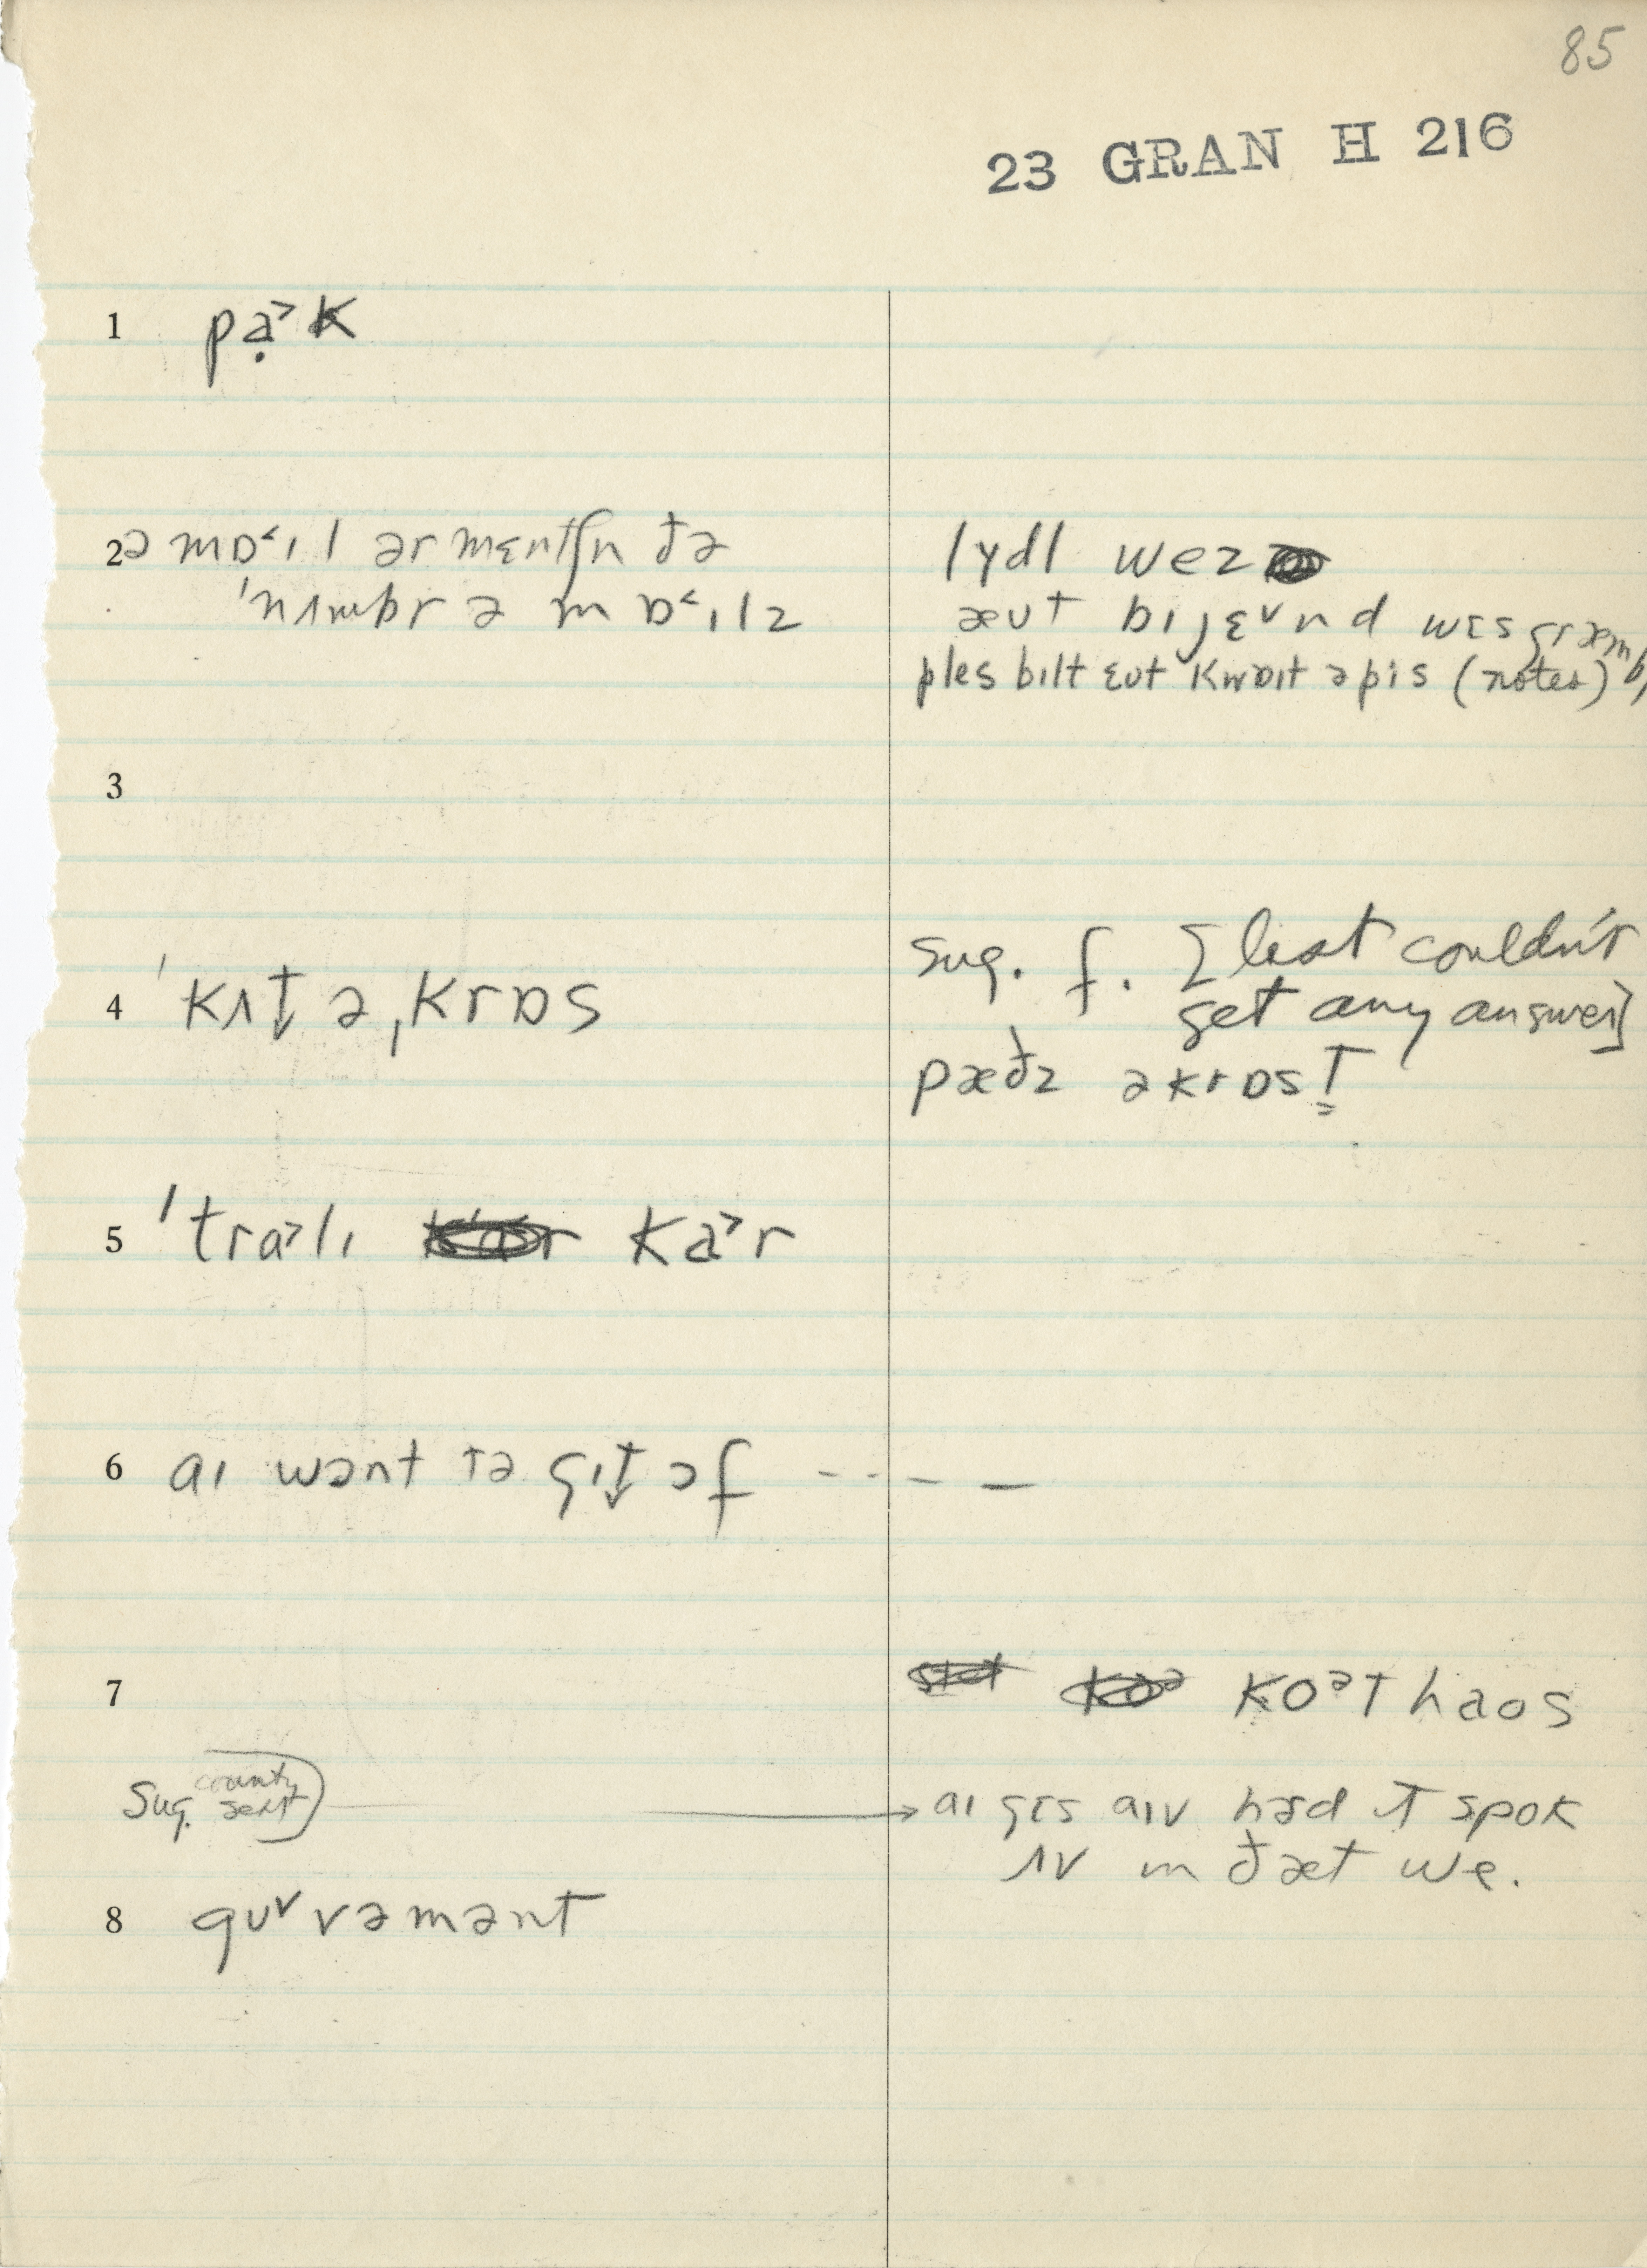 85
23 GRAN H 216
1 pạ˃k
2 ə mɒ˂ɪl ər mɛntʃn ðə
'nʌmbr ə mɒ˂ɪlz
lydl wez
æʊt bɪjɛ˅nd wɛs græmbi
ples bɪlt ɛʊt kwɒɪt ə pis (notes)
3
4 'kʌt ə,krɒs
sug. f. [but couldn't
get any answer]
pæðz əkrɒst
5 'tra˃lɪ ka˃r
6 aɪ wɔnt tə gɪt ɔf -----
7 koᵊt haos
Sug. county seat
aɪ gɛs aɪv hɜd ɪt spok
ʌv ɪn ðæt we.
8 gʊ˅vəmənt